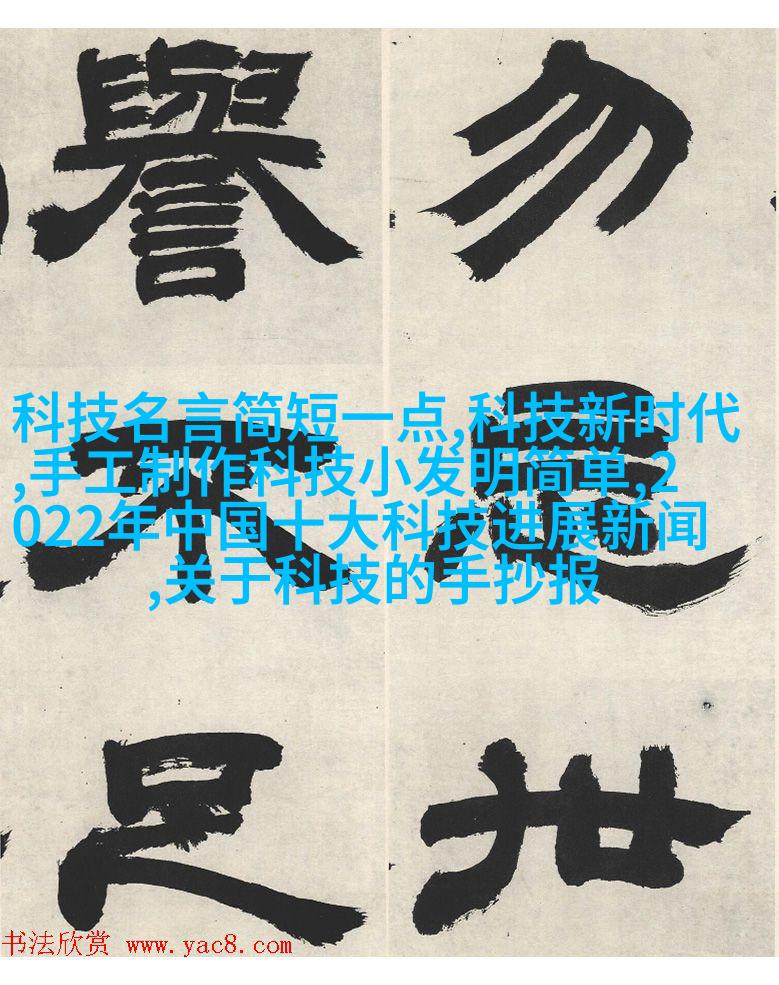 勿世
譽不足
科技名言简短一点,科技新时代
,手工制作科技小发明简单,2
022年中国十大科技进展新闻
,关于科技的手抄报
书法欣赏 www.yac8.com